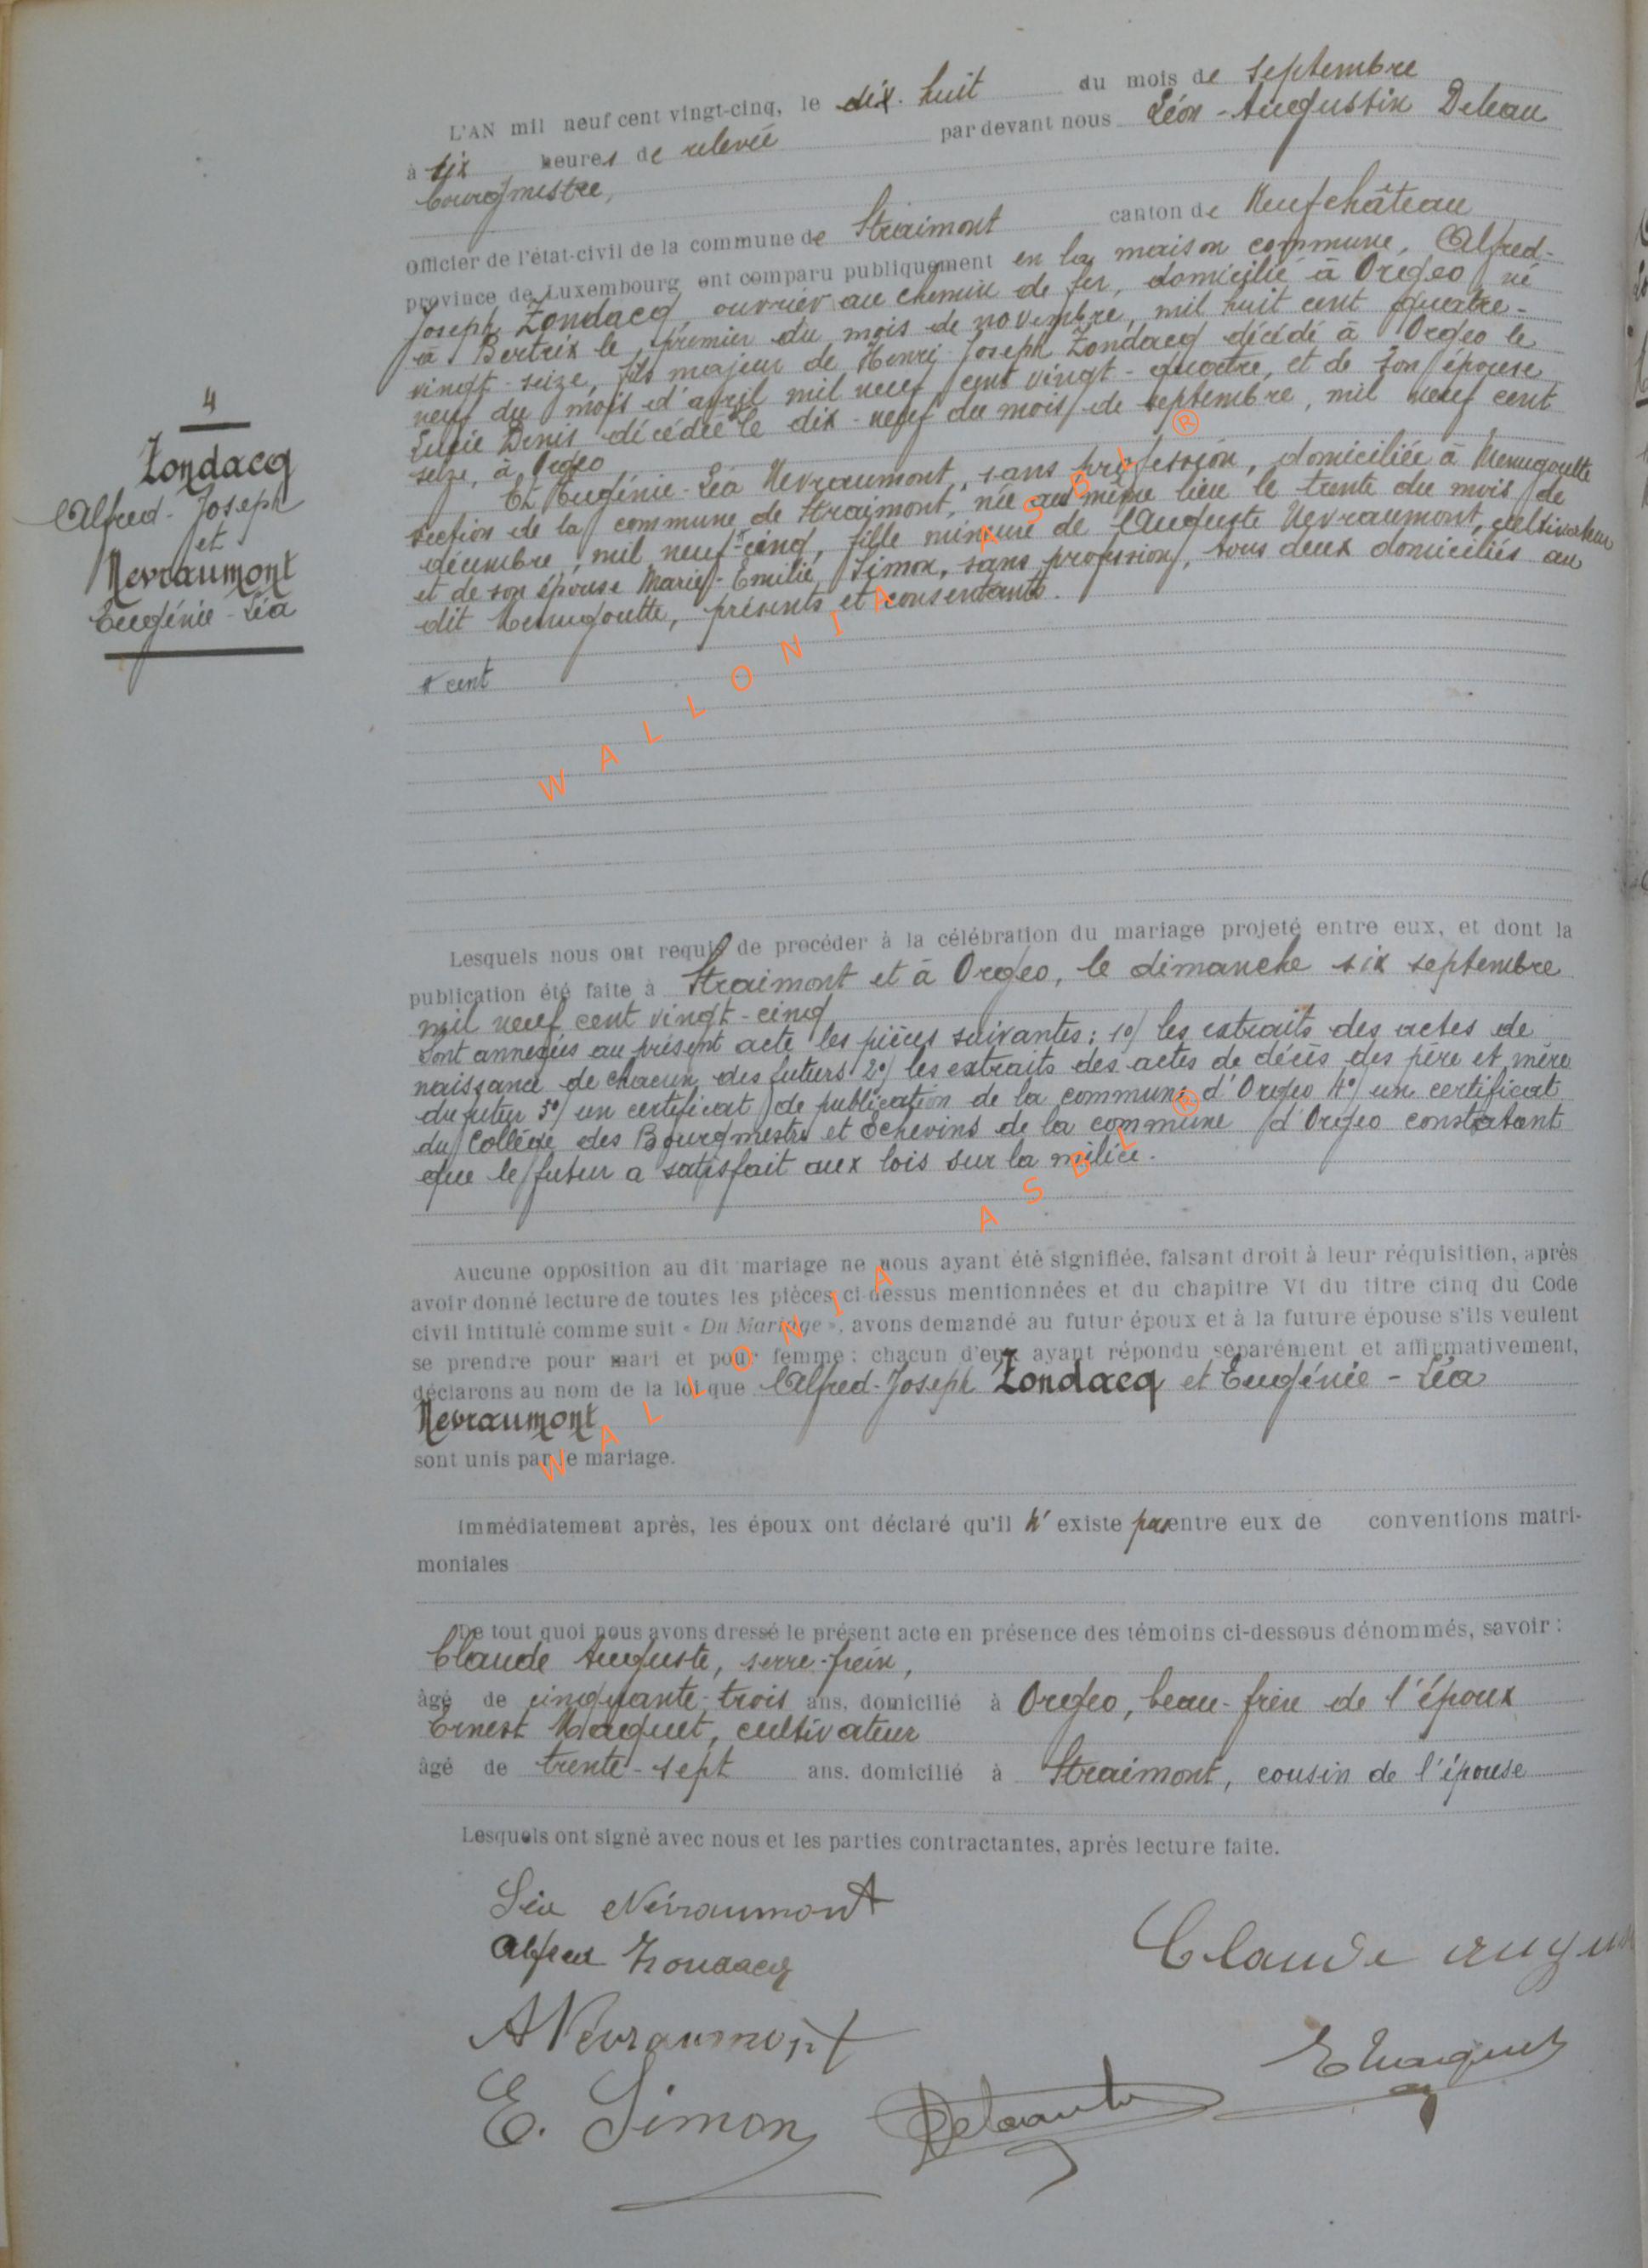 4
Zondacq
Alfred-Joseph
et
Nevraumont
Eugénie-Léa
L'AN mil neuf cent vingt-cinq, le dix-huit du mois de septembre
à six heures de relevée par devant nous Léon-Augustin
bourgmestre,
Officier de l'état-civil de la commune de Straimont canton de Neufchâteau
province de Luxembourg ont comparu publiquement en la maison commune, Alfred-
Joseph Zondacq, ouvrier au chemin de fer, domicilié à Orgeo né
à Bertrix le premier du mois de novembre, mil huit cent quatre-
vingt-seize, fils majeur de Henri-Joseph Zondacq décédé à Orgeo le
neuf du mois d'avril mil neuf cent vingt-quatre, et de son épouse
Denis décédée le dix-neuf du mois de septembre, mil neuf cent
seize, à Orgeo
Et Eugénie-Léa Nevraumont, sans profession, domiciliée à Menugoutte
section de la commune de Straimont, née au même lieu le trente du mois de
décembre, mil neuf + cinq, fille mineure de Auguste Nevraumont, cultivateur
et de son épouse Marie-Emilie Simon, sans profession, tous deux domiciliés au
dit Menugoutte, présents et consentants.
+ cent
Lesquels nous ont requis de procéder à la célébration du mariage projeté entre eux, et dont la
publication été faite à Straimont et à Orgeo, le dimanche six septembre
mil neuf cent vingt-cinq
Sont annexées au présent acte les pièces suivantes: 1o/ les extraits des actes de
naissance de chacun des futurs 2o/ les extraits des actes de décès des père et mère
du futur 3o/ un certificat de publication de la commune d'Orgeo 4o/ un certificat
du Collège des Bourgmestre et Echevins de la commune d'Orgeo constatant
que le futur a satisfait aux lois sur la milice.
Aucune opposition au dit mariage ne nous ayant été signifiée, faisant droit à leur réquisition, après
avoir donné lecture de toutes les pièces ci-dessus mentionnées et du chapitre VI du titre cinq du Code
civil intitulé comme suit « Du Mariage », avons demandé au futur époux et à la future épouse s'ils veulent
se prendre pour mari et pour femme : chacun d'eux ayant répondu séparément et affirmativement,
déclarons au nom de la loi que Alfred-Joseph Zondacq et Eugénie-Léa
Nevraumont
sont unis par le mariage.
Immédiatement après, les époux ont déclaré qu'il n'existe pas entre eux de conventions matri-
moniales
De tout quoi nous avons dressé le présent acte en présence des témoins ci-dessous dénommés, savoir :
Claude Auguste, serre-frein,
âgé de cinquante-trois ans, domicilié à Orgeo, beau-frère de l'époux
Ernest Maquet, cultivateur
âgé de trente-sept ans. domicilié à Straimont, cousin de l'épouse
Lesquels ont signé avec nous et les parties contractantes, après lecture faite.
Léa Névraumont
Alfred Zondacq
Claude
A Névraumont
E Maquet
E. Simon
WALLONIA ASBL ®
WALLONIA ASBL ®